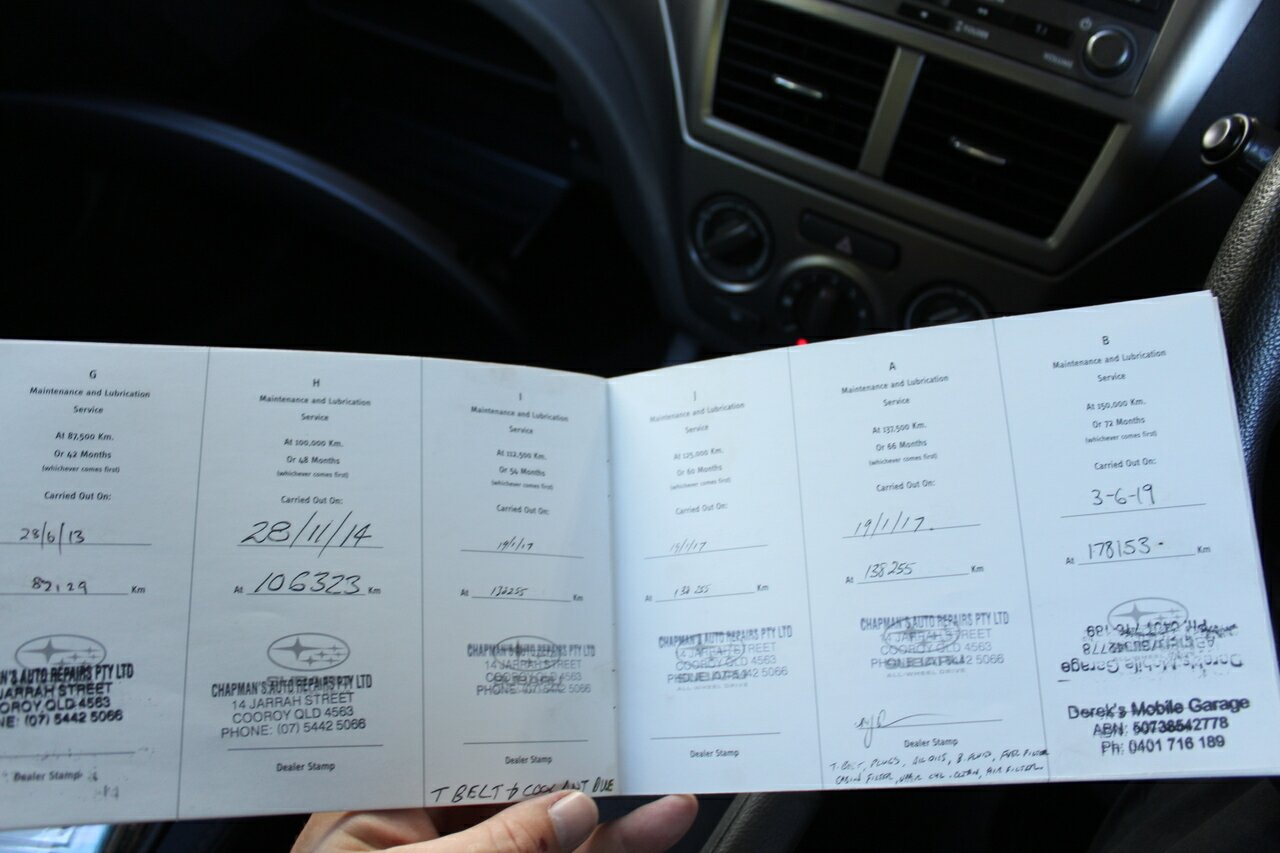 VOLUME
G
Maintenance and Lubrication
Service
At 87,500 Km.
Or 42 Months
(whichever comes first)
Carried Out On:
28/6/13
Km
CHAPMAN'S AUTO REPAIRS PTY LTD
JARRAH STREET
COOROY QLD 4563
PHONE: (07) 5442 5066
Dealer Stamp
H
Maintenance and Lubrication
Service
At 100,000 Km.
Or 48 Months
(whichever comes first)
Carried Out On:
28/11/14
At 106323 Km
CHAPMAN'S AUTO REPAIRS PTY LTD
14 JARRAH STREET
COOROY QLD 4563
PHONE: (07) 5442 5066
Dealer Stamp
I
Maintenance and Lubrication
Service
At 112,500 Km.
Or 54 Months
(whichever comes first)
Carried Out On:
19/1/17
At 132255 Km
CHAPMAN'S AUTO REPAIRS PTY LTD
14 JARRAH STREET
COOROY QLD 4563
PHONE: (07) 5442 5066
Dealer Stamp
T BELT & COOLANT DUE
J
Maintenance and Lubrication
Service
At 125,000 Km.
Or 60 Months
(whichever comes first)
Carried Out On:
19/1/17
At 132255 Km
CHAPMAN'S AUTO REPAIRS PTY LTD
14 JARRAH STREET
COOROY QLD 4563
PHONE: (07) 5442 5066
ALL-WHEEL DRIVE
Dealer Stamp
A
Maintenance and Lubrication
Service
At 137,500 Km.
Or 66 Months
(whichever comes first)
Carried Out On:
19/1/17.
At 138255 Km
CHAPMAN'S AUTO REPAIRS PTY LTD
14 JARRAH STREET
COOROY QLD 4563
PHONE: (07) 5442 5066
ALL-WHEEL DRIVE
Dealer Stamp
T. BELT, PLUGS, ALL OILS, B. FLUID, FUEL FILTER
CABIN FILTER, CLEAN, AIR FILTER.
B
Maintenance and Lubrication
Service
At 150,000 Km.
Or 72 Months
(whichever comes first)
Carried Out On:
3-6-19
At 178153- Km
Derek's Mobile Garage
ABN: 50738542778
Ph: 0401 716 189